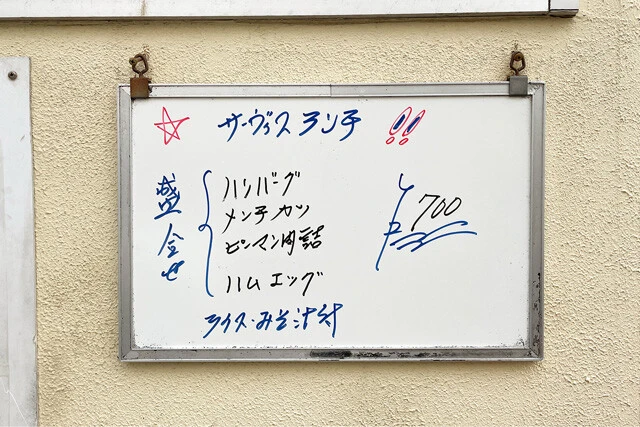 ☆ サーヴィスランチ !!
盛合せ
ハンバーグ
メンチカツ
ピーマン肉詰
ハムエッグ
ライス・みそ汁付
¥700